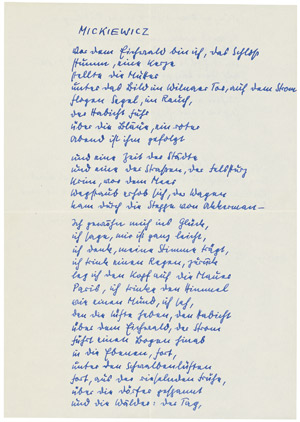 MICKIEWICZ
Vor dem Eichwald bin ich, das Schloß
stumm, eine Kerze
hellte die Mützen
unter das Bild im Wilnaer Tor, auf dem Strom
flogen Segel, im Rauch,
der Habicht fuhr
über die Bläue, ein roter
Abend ist ihm gefolgt
und eine Zeit der Städte
und eine der Straßen, der
Krim, vor dem Meer
Wegstaub erhob sich, der Wagen
kam durch die Steppe von Akkerman—
Ich gewöhn mich ins Glück,
ich sage, mir ist ganz leicht,
ich denk, meine Stimme trägt,
ich trink einen Regen, zurück
leg ich den Kopf auf die Mauer
Paris, ich trinke den Himmel
wie einen Mund, ich seh,
den die Lüfte haben, den Habicht
über dem Eichwald, der Strom
führt einen Bogen hinab
in die Ebenen, fort,
unter den Schwalbenlüften
fort, auf der rieselnden Frühe,
über die Dörfer gespannt
und die Wälder: der Tag,